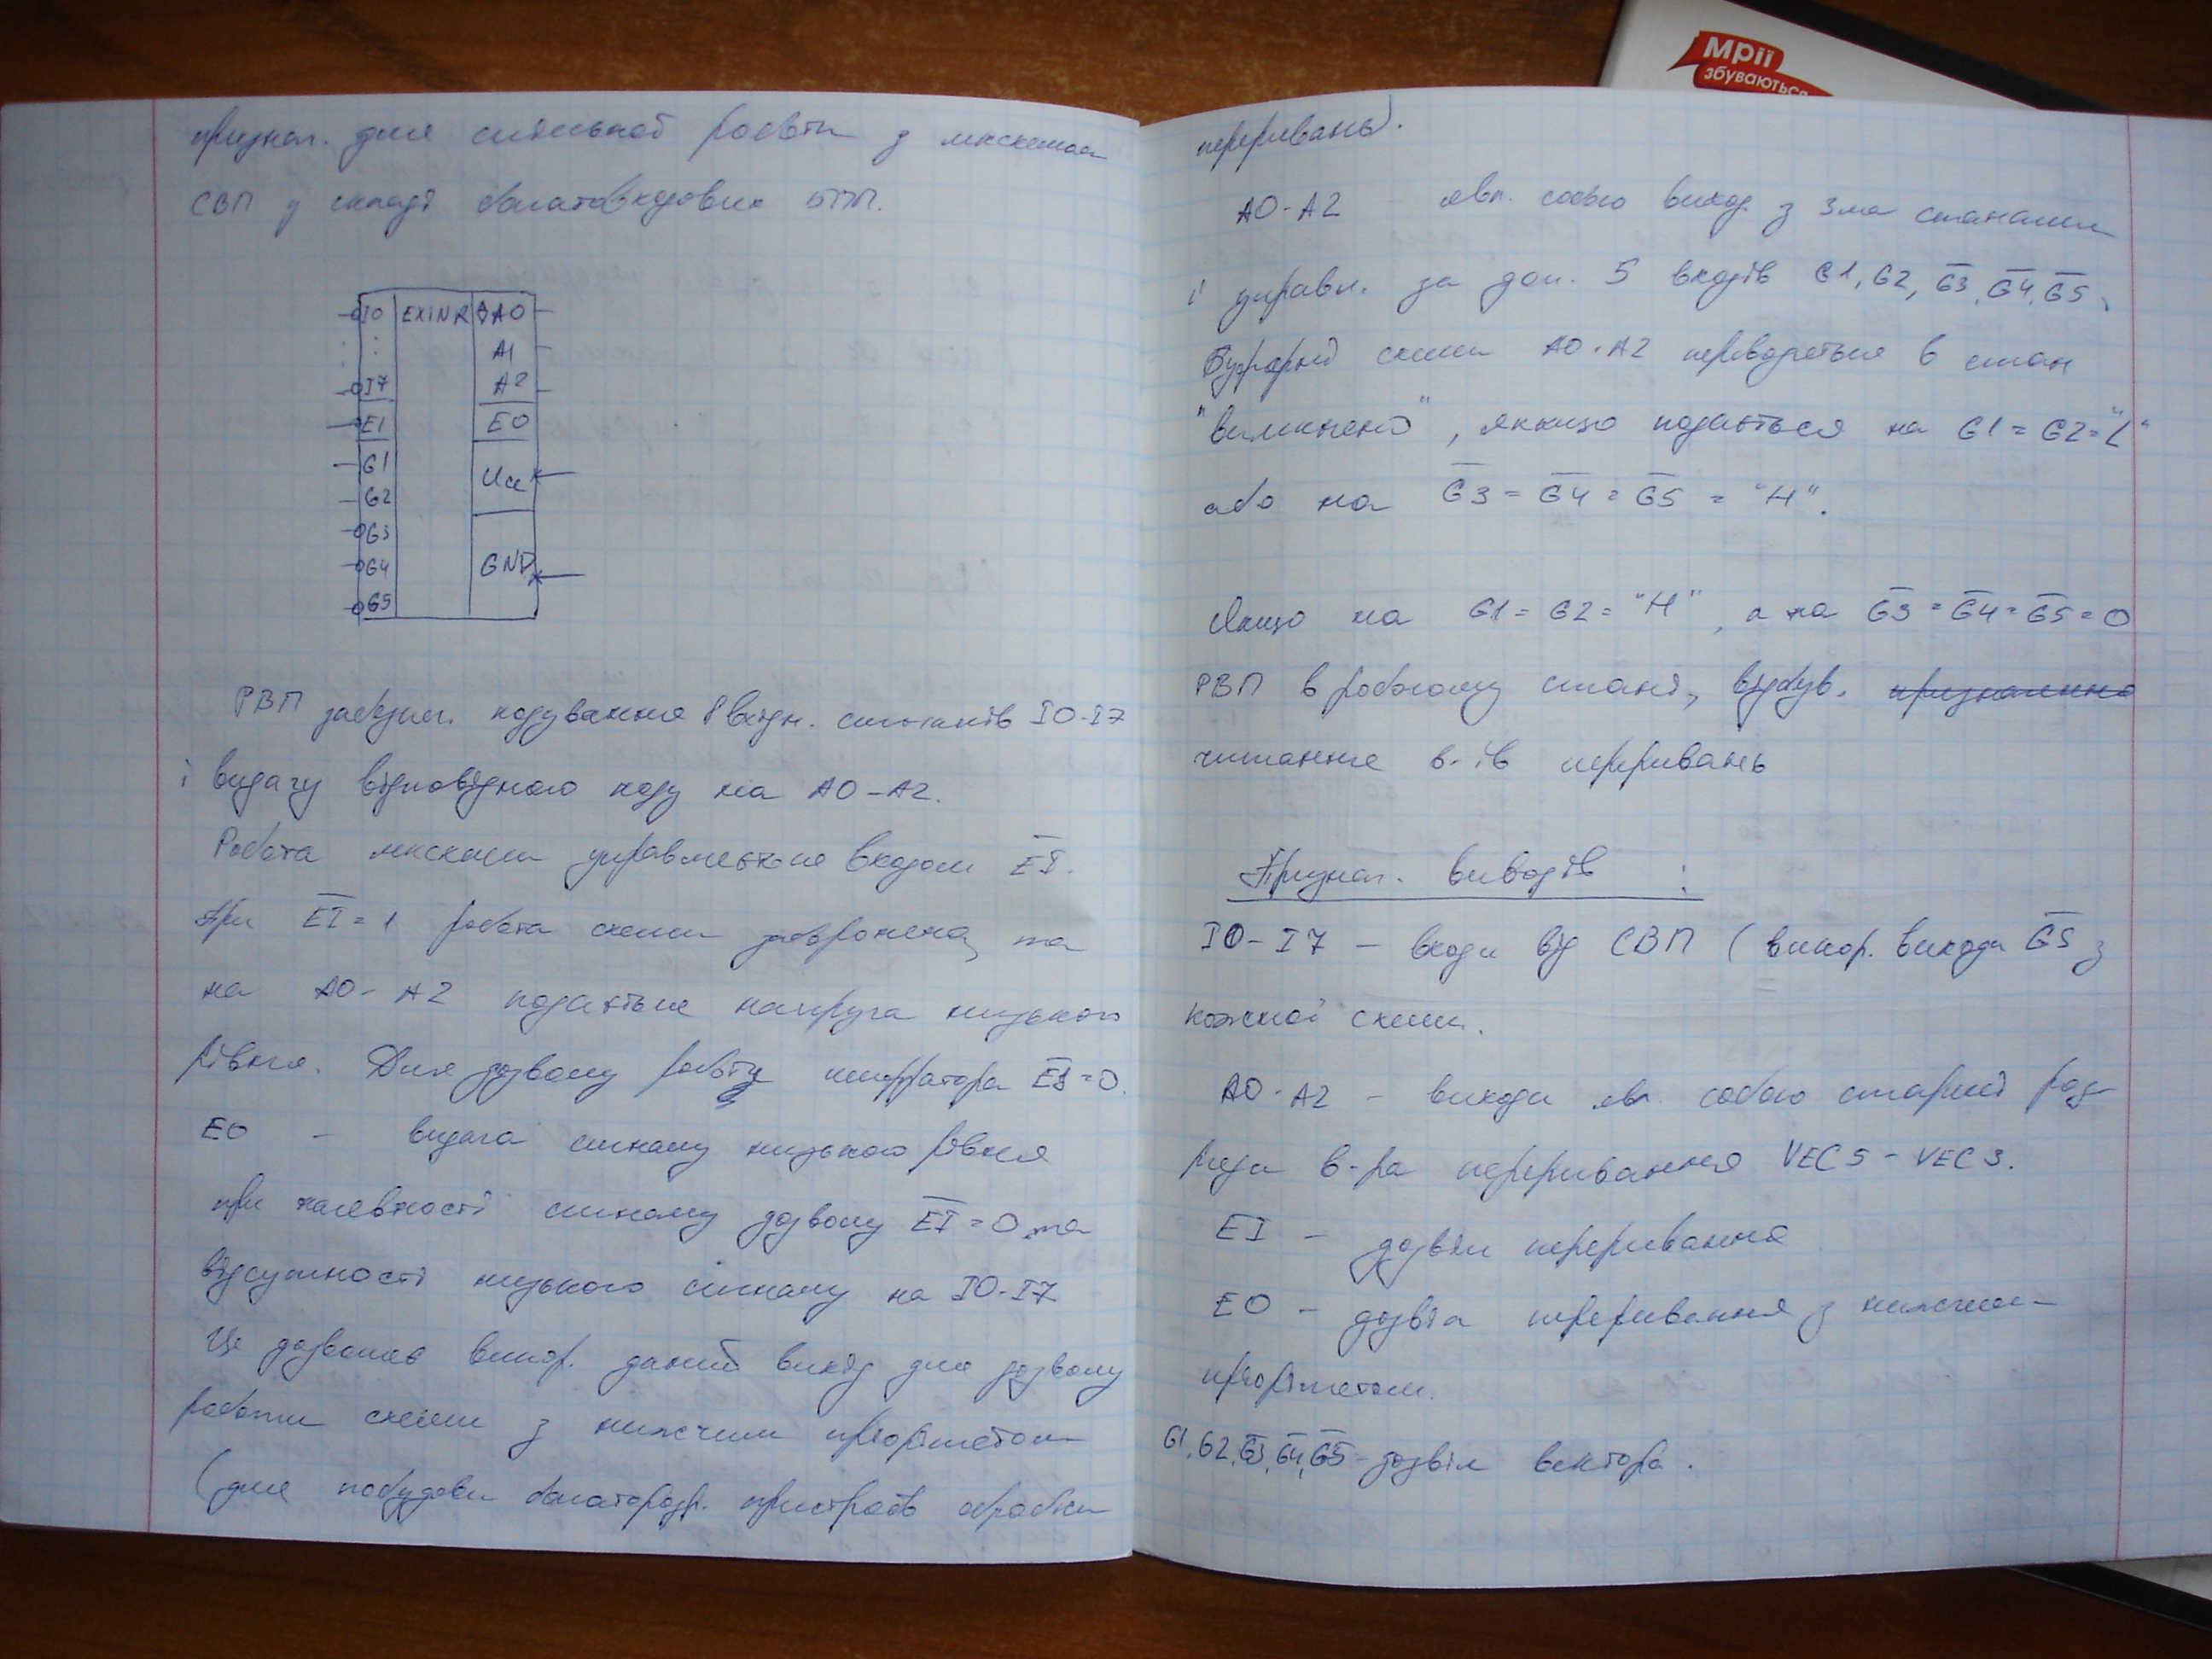 признач. для спільної роботи з мксхемами
СВП у складі багатовходових БПП.
I0 EXINR A0
A1
I7 A2
EI E0
G1 Ucc
G2
G3
G4 GND
G5
РВП забезпеч. кодування 8 вхідн. сигналів I0-I7
і видачу відповідного коду на A0-A2.
Робота мксхеми управляється входом E̅I̅.
При E̅I̅=1 робота схеми заборонена, та
на A0-A2 подається напруга низького
рівня. Для дозволу роботи шифратора E̅I̅=0.
E0 - видача сигналу низького рівня
при наявності сигналу дозволу E̅I̅=0 та
відсутності низького сигналу на I0-I7
Це дозволяє викор. даний вихід для дозволу
роботи схеми з нижчим пріоритетом
(для побудови багаторозр. пристроїв обробки
переривань).
A0-A2 явл. собою виход. з 3ма станами
і управл. за доп. 5 входів G1, G2, G̅3̅, G̅4̅, G̅5̅.
Буферні схеми A0-A2 переводяться в стан
"вимкнено", якщо подається на G1=G2="L"
або на G̅3̅=G̅4̅=G̅5̅="H".
Якщо на G1=G2="H", а на G̅3̅=G̅4̅=G̅5̅=0
РВП в робочому стані, відбув. призначення
читання в-ів переривань
Признач. виводів :
I0-I7 - входи від СВП (викор. виходи G̅S̅ з
кожної схеми.
A0-A2 - виходи явл. собою старші роз-
ряди в-ра переривання VEC5-VEC3.
EI - дозвіл переривання
E0 - дозвіл переривання з нижчим
пріоритетом.
G1, G2, G̅3̅, G̅4̅, G̅5̅ - дозвіл вектора.
Мрії
збуваються